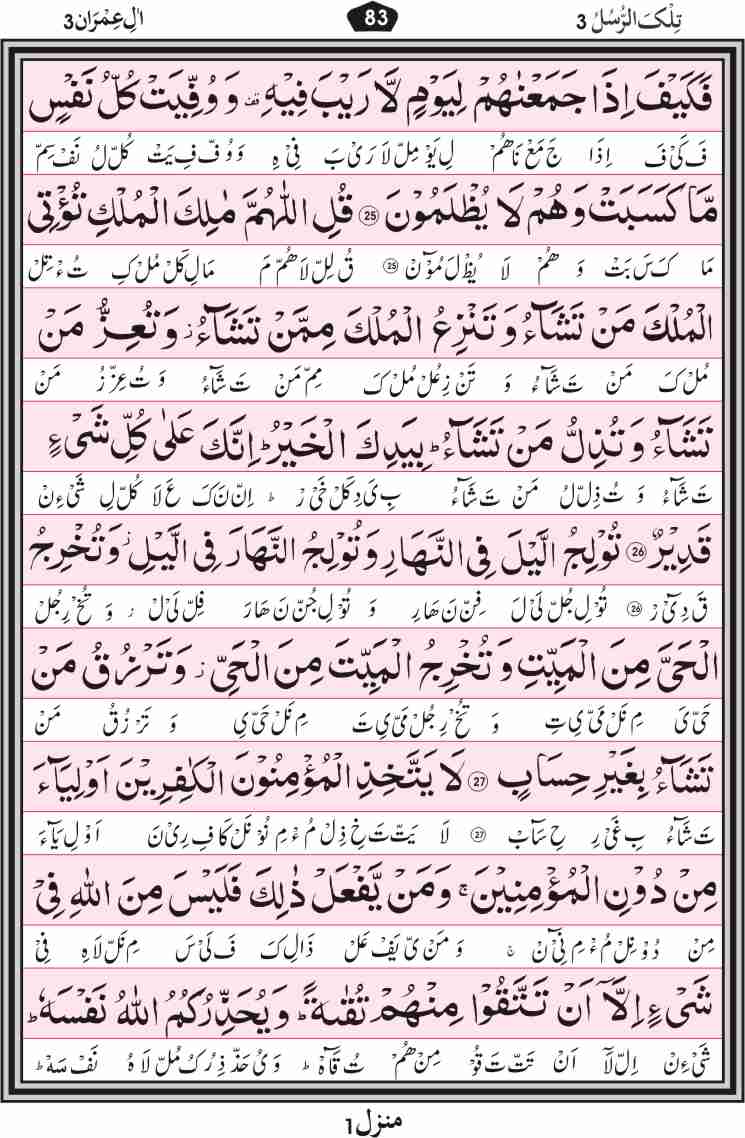 تِلْكَ الرُّسُلُ 3 83 اٰلِ عِمْرَان 3
فَكَيْفَ اِذَا جَمَعْنٰهُمْ لِيَوْمٍ لَّا رَيْبَ فِيْهِ قف وَ وُفِّيَتْ كُلُّ نَفْسٍ
فَ كَىْ فَ اِذَا جَ مَعْ نَاهُمْ لِ يَوْ مِلْ لَا رَىْ بَ فِىْ هِ وَ وُفْ فِ يَتْ كُلْ لُ نَفْ سِمْ
مَّا كَسَبَتْ وَهُمْ لَا يُظْلَمُوْنَ 25 قُلِ اللّٰهُمَّ مٰلِكَ الْمُلْكِ تُؤْتِى
مَا كَ سَ بَتْ وَ هُمْ لَا يُظْ لَ مُوْٓنْ 25 قُ لِلْ لَا هُمْ مَ مَا لِ كَلْ مُلْ كِ تُ ءْ تِلْ
الْمُلْكَ مَنْ تَشَآءُ وَ تَنْزِعُ الْمُلْكَ مِمَّنْ تَشَآءُ ز وَ تُعِزُّ مَنْ
مُلْ كَ مَنْ تَ شَآءُ وَ تَنْ زِ عُلْ مُلْ كَ مِمْ مَنْ تَ شَآءُ وَ تُ عِزْ زُ مَنْ
تَشَآءُ وَ تُذِلُّ مَنْ تَشَآءُ ط بِيَدِكَ الْخَيْرُ ط اِنَّكَ عَلٰى كُلِّ شَىْءٍ
تَ شَآءُ وَ تُ ذِلْ لُ مَنْ تَ شَآءُ بِ ىَ دِ كَلْ خَىْ رْ ط اِنْ نَ كَ عَ لَا كُلْ لِ شَىْءِنْ
قَدِيْرٌ 26 تُوْلِجُ الَّيْلَ فِى النَّهَارِ وَ تُوْلِجُ النَّهَارَ فِى الَّيْلِ ز وَ تُخْرِجُ
قَ دِىْٓ رْ 26 تُوْ لِ جُلْ لَىْ لَ فِنْ نَ هَارِ وَ تُوْ لِ جُنْ نَ هَارَ فِلْ لَىْ لْ ز وَ تُخْ رِ جُلْ
الْحَىَّ مِنَ الْمَيِّتِ وَ تُخْرِجُ الْمَيِّتَ مِنَ الْحَىِّ ز وَ تَرْزُقُ مَنْ
حَىْ ىَ مِ نَلْ مَىْ ىِ تِ وَ تُخْ رِ جُلْ مَىْ ىِ تَ مِ نَلْ حَىْ ىِ وَ تَرْ زُقُ مَنْ
تَشَآءُ بِغَيْرِ حِسَابٍ 27 لَا يَتَّخِذِ الْمُؤْمِنُوْنَ الْكٰفِرِيْنَ اَوْلِيَآءَ
تَ شَآءُ بِ غَىْ رِ حِ سَآبْ 27 لَا يَتْ تَ خِ ذِلْ مُ ءْ مِ نُوْ نَلْ كَا فِ رِىْ نَ اَوْ لِ يَآءَ
مِنْ دُوْنِ الْمُؤْمِنِيْنَ ج وَمَنْ يَّفْعَلْ ذٰلِكَ فَلَيْسَ مِنَ اللّٰهِ فِىْ
مِنْ دُوْ نِلْ مُ ءْ مِ نِىْٓ نْ ج وَ مَنْ ىْ يَفْ عَلْ ذَالِ كَ فَ لَىْ سَ مِ نَلْ لَا هِ فِىْ
شَىْءٍ اِلَّآ اَنْ تَتَّقُوْا مِنْهُمْ تُقٰىةً ط وَ يُحَذِّرُكُمُ اللّٰهُ نَفْسَهٗ ط
شَىْءِنْ اِلْ لَآ اَنْ تَتْ تَ قُوْ مِنْ هُمْ تُ قَاةْ ط وَ ىُ حَذْ ذِ رُ كُ مُلْ لَا هُ نَفْ سَهْ ط
منزل 1